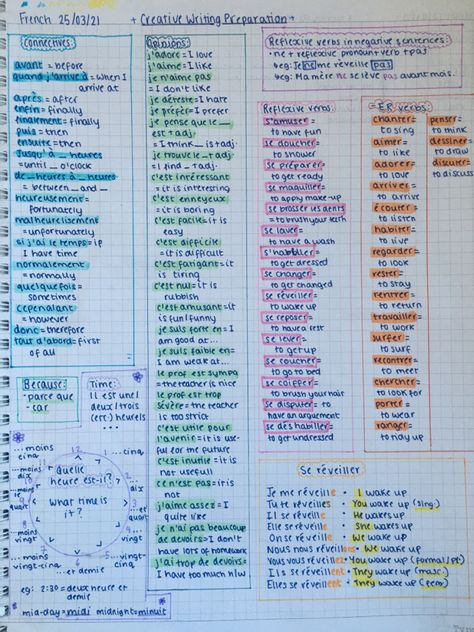 French 25/03/21 + Creative Writing Preparation +
Connectives:
avant = before
quand j'arrive à = when I
arrive at
après = after
enfin = finally
finalement = finally
puis = then
ensuite = then
jusqu'à _ heures
= until _ o'clock
de _ heures à _ heures
= between _ and _
heureusement =
fortunately
malheureusement
= unfortunately
si j'ai le temps = if
I have time
normalement
= normally
quelquefois =
sometimes
cependant
= however
donc = therefore
tout d'abord = first
of all
Because:
- parce que
- car
Time:
il est une /
deux / trois
(etc.) heure/s
...
Quelle
heure est-il?
What time is
it?
...moins
cinq
...moins
dix
...moins
...moins
vingt-cinq
...et demie
...cinq
...dix
...et
quart
...vingt-
cinq
eg: 2:30 = deux heure et
demie
mid-day = midi midnight = minuit
Opinions:
j'adore = I love
j'aime = I like
je n'aime pas
= I don't like
je déteste = I hate
je préfère = I prefer
je pense que le _
est + adj.
= I think _ is + adj.
je trouve le _ + adj
= I find _ + adj.
c'est intéressant
= it is interesting
c'est ennyeux
= it is boring
c'est facile = it is
easy
c'est difficile
= it is difficult
c'est fatigant = it
is tiring
c'est nul = it is
rubbish
c'est amusant = it
is fun / funny
je suis fort en = I
am good at...
je suis faible en =
I am weak at...
le prof est sympa
= the teacher is nice
le prof est trop
sévère = the teacher
is too strict
c'est utile pour
l'avenir = it is use-
ful for the future
c'est inutile = it is
not useful
ce n'est pas = it is
not
j'aime assez = I
quite like
je n'ai pas beaucoup
de devoirs = I don't
have lots of homework
j'ai trop de devoirs =
I have too much h/w
Reflexive verbs in negative sentences:
• ne + reflexive pronoun + verb + pas
eg: Je ne me réveille pas
eg: Ma mère ne se lève pas avant moi.
Reflexive verbs:
s'amuser =
to have fun
se doucher =
to shower
se préparer =
to get ready
se maquiller =
to apply make-up
se brosser les dents
= to brush your teeth
se laver =
to have a wash
s'habiller =
to get dressed
se changer =
to get changed
se réveiller =
to wake up
se reposer =
to have a rest
se lever =
to get up
se coucher =
to go to bed
se coiffer =
to brush your hair
se disputer = to
have an argument
se déshabiller =
to get undressed
-ER verbs:
chanter =
to sing
aimer =
to like
adorer =
to love
arriver =
to arrive
écouter =
to listen
habiter =
to live
regarder =
to look
rester =
to stay
rentrer =
to return
travailler =
to work
surfer =
to surf
recontrer =
to meet
chercher =
to look for
porter =
to wear
ranger =
to tidy up
penser =
to think
dessiner =
to draw
discuter =
to discuss
Se réveiller
Je me réveille • I wake up
Tu te réveilles • You wake up (sing.)
Il se réveille • He wakes up
Elle se réveille • She wakes up
On se réveille • We wake up
Nous nous réveillons • We wake up
Vous vous réveillez • You wake up (formal / pl)
Ils se réveillent • They wake up (masc.)
Elles se réveillent • They wake up (fem)